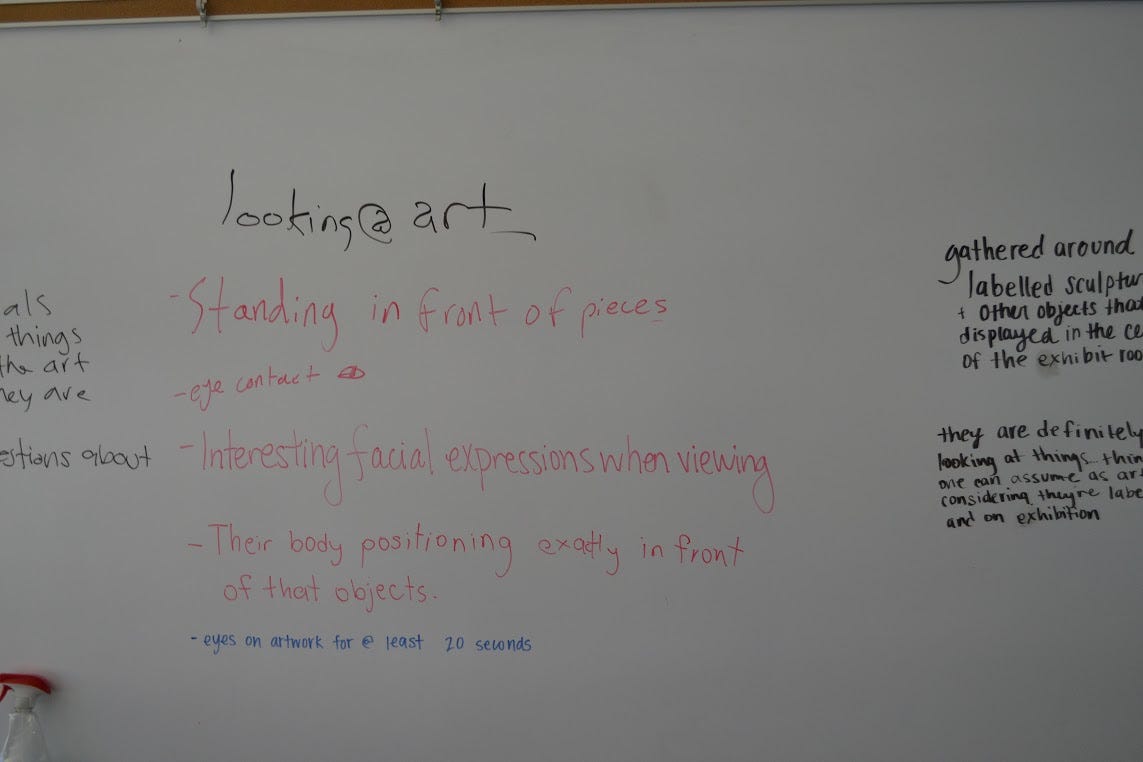 looking@ art
- Standing in front of pieces
- eye contact
- Interesting facial expressions when viewing
- Their body positioning exactly in front
of that objects.
- eyes on artwork for @ least 20 seconds
als
things
the art
hey are
estions about
gathered around
labelled sculptur
+ other objects that
displayed in the ce
of the exhibit roo
they are definitely
looking at things... thin
one can assume as art
considering they're labe
and on exhibition